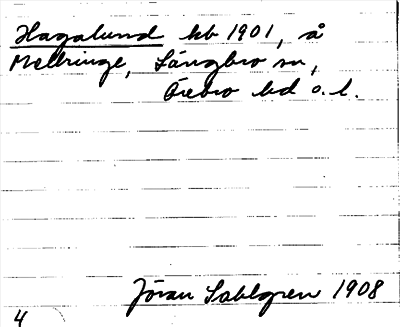 Hagalund kb 1901, å
Mellringe, Längbro sn,
Örebro hd o. l.
Jöran Sahlgren 1908
4